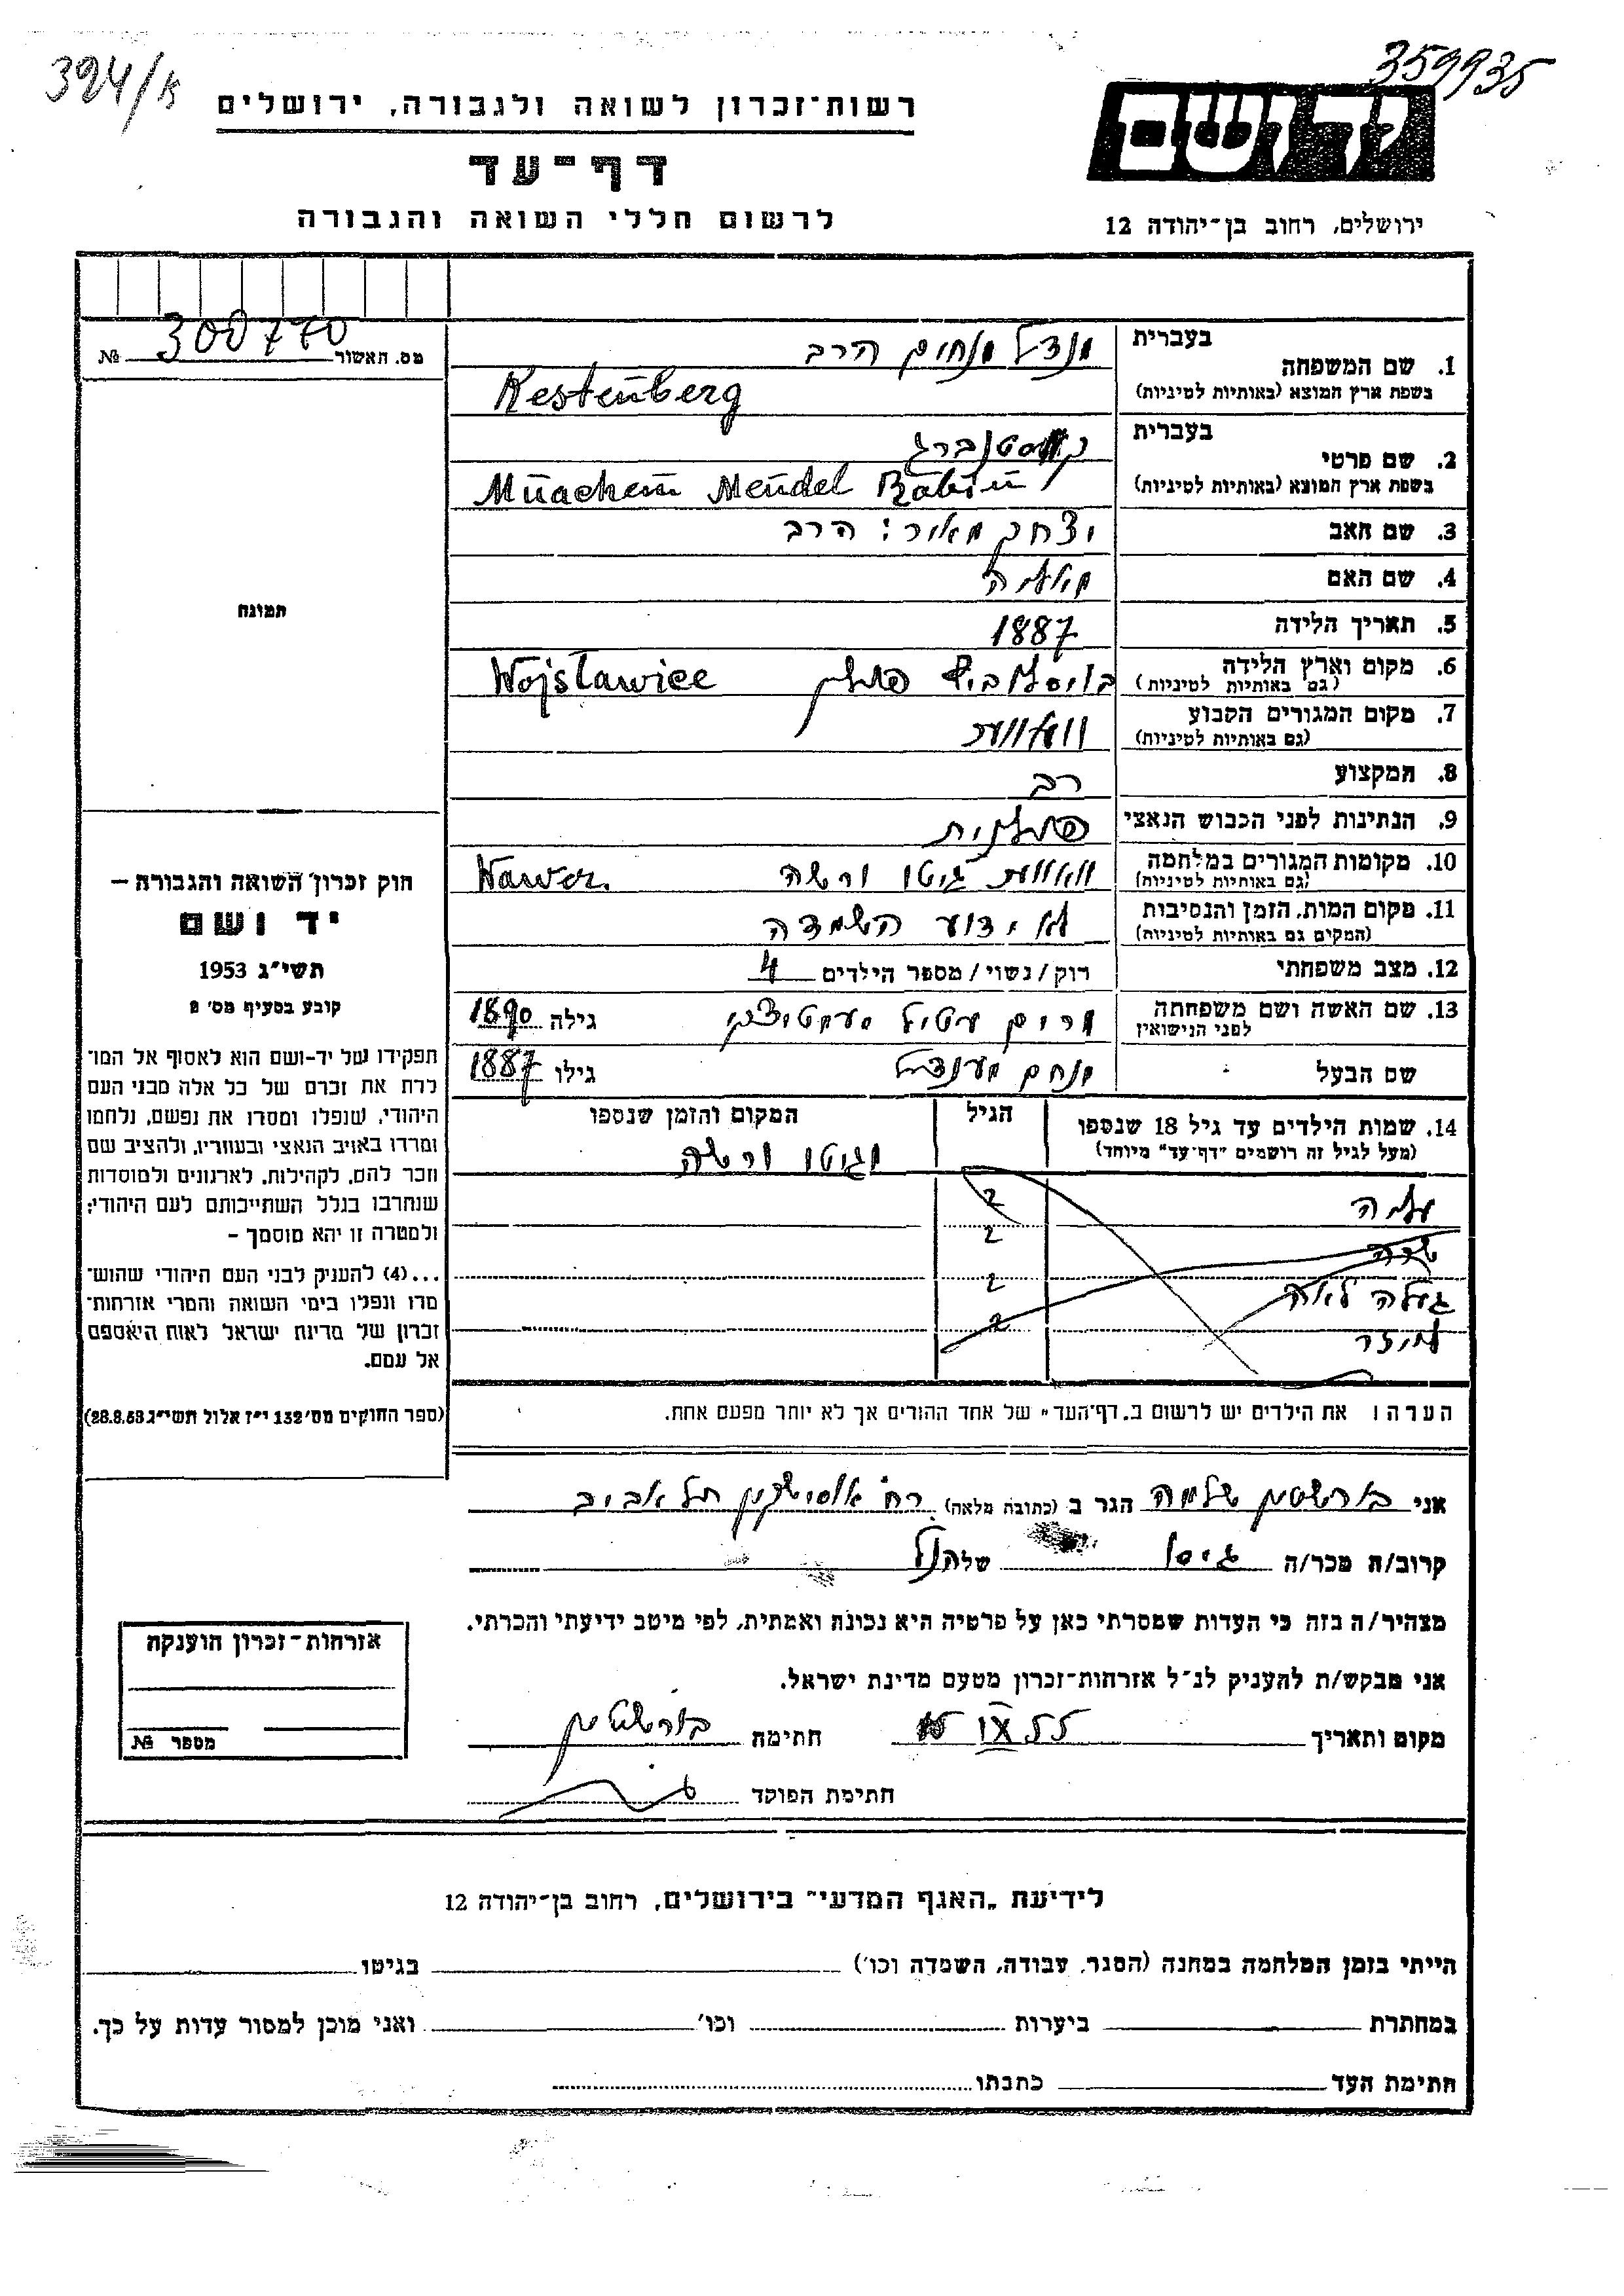 394/א
359935
רשות־זכרון לשואה ולגבורה, ירושלים
יד ושם
דף־עד
לרשום חללי השואה והגבורה
ירושלים, רחוב בן־יהודה 12
מס. האשור 300770 №
1. שם המשפחה
בעברית מנדל מנחים הרב
בשפת ארץ המוצא (באותיות לטיניות) Kestenberg
2. שם פרטי
בעברית קסטנברג
בשפת ארץ המוצא (באותיות לטיניות) Mnachem Mendel Rabin
3. שם האב יצחק מאיר: הרב
4. שם האם
5. תאריך הלידה 1887
6. מקום וארץ הלידה
(גם באותיות לטיניות) פולין Wojsławice
7. מקום המגורים הקבוע
(גם באותיות לטיניות)
8. המקצוע רב
9. הנתינות לפני הכבוש הנאצי פולנית
10. מקומות המגורים במלחמה
(גם באותיות לטיניות) גיטו ורשה Wawer.
11. מקום המות, הזמן והנסיבות
(המקום גם באותיות לטיניות) לא ידוע השמדה
12. מצב משפחתי רוק/נשוי/מספר הילדים 4
13. שם האשה ושם משפחתה
לפני הנישואין מרים גילה 1890
שם הבעל מנחם מענדל גילו 1887
14. שמות הילדים עד גיל 18 שנספו
(מעל לגיל זה רושמים "דף־עד" מיוחד)
הגיל
המקום והזמן שנספו
וגיטו ורשה
2
שרה 2
גאלה לאה 2
2
הערה: את הילדים יש לרשום ב„דף־העד" של אחד ההורים אך לא יותר מפעם אחת.
תמונה
חוק זכרון השואה והגבורה –
יד ושם
תשי״ג 1953
קובע בסעיף מס׳ 2
תפקידו של יד-ושם הוא לאסוף אל המו־
לדת את זכרם של כל אלה מבני העם
היהודי, שנפלו ומסרו את נפשם, נלחמו
ומרדו באויב הנאצי ובעוזריו, ולהציב שם
וזכר להם, לקהילות, לארגונים ולמוסדות
שנחרבו בגלל השתייכותם לעם היהודי;
ולמטרה זו יהא מוסמך –
...(4) להעניק לבני העם היהודי שהוש־
מדו ונפלו בימי השואה והמרי אזרחות־
זכרון של מדינת ישראל לאות היאספם
אל עמם.
(ספר החוקים מס׳ 132 י״ז אלול תשי״ג 28.8.53)
אני בורשטין שלמה הגר ב (כתובת מלאה) רח׳ אוסישקין תל אביב
קרוב/ה מכר/ה גיסו של הנ״ל
מצהיר/ה בזה כי העדות שמסרתי כאן על פרטיה היא נכונה ואמתית, לפי מיטב ידיעתי והכרתי.
אני מבקש/ת להעניק לנ״ל אזרחות־זכרון מטעם מדינת ישראל.
מקום ותאריך IX 55 חתימה בורשטין
חתימת הפוקד
אזרחות־זכרון הוענקה
מספר №
לידיעת „האגף המדעי" בירושלים, רחוב בן־יהודה 12
הייתי בזמן המלחמה במחנה (הסגר, עבודה, השמדה וכו׳) בגיטו
במחתרת ביערות וכו׳ ואני מוכן למסור עדות על כך.
חתימת העד כתבתו